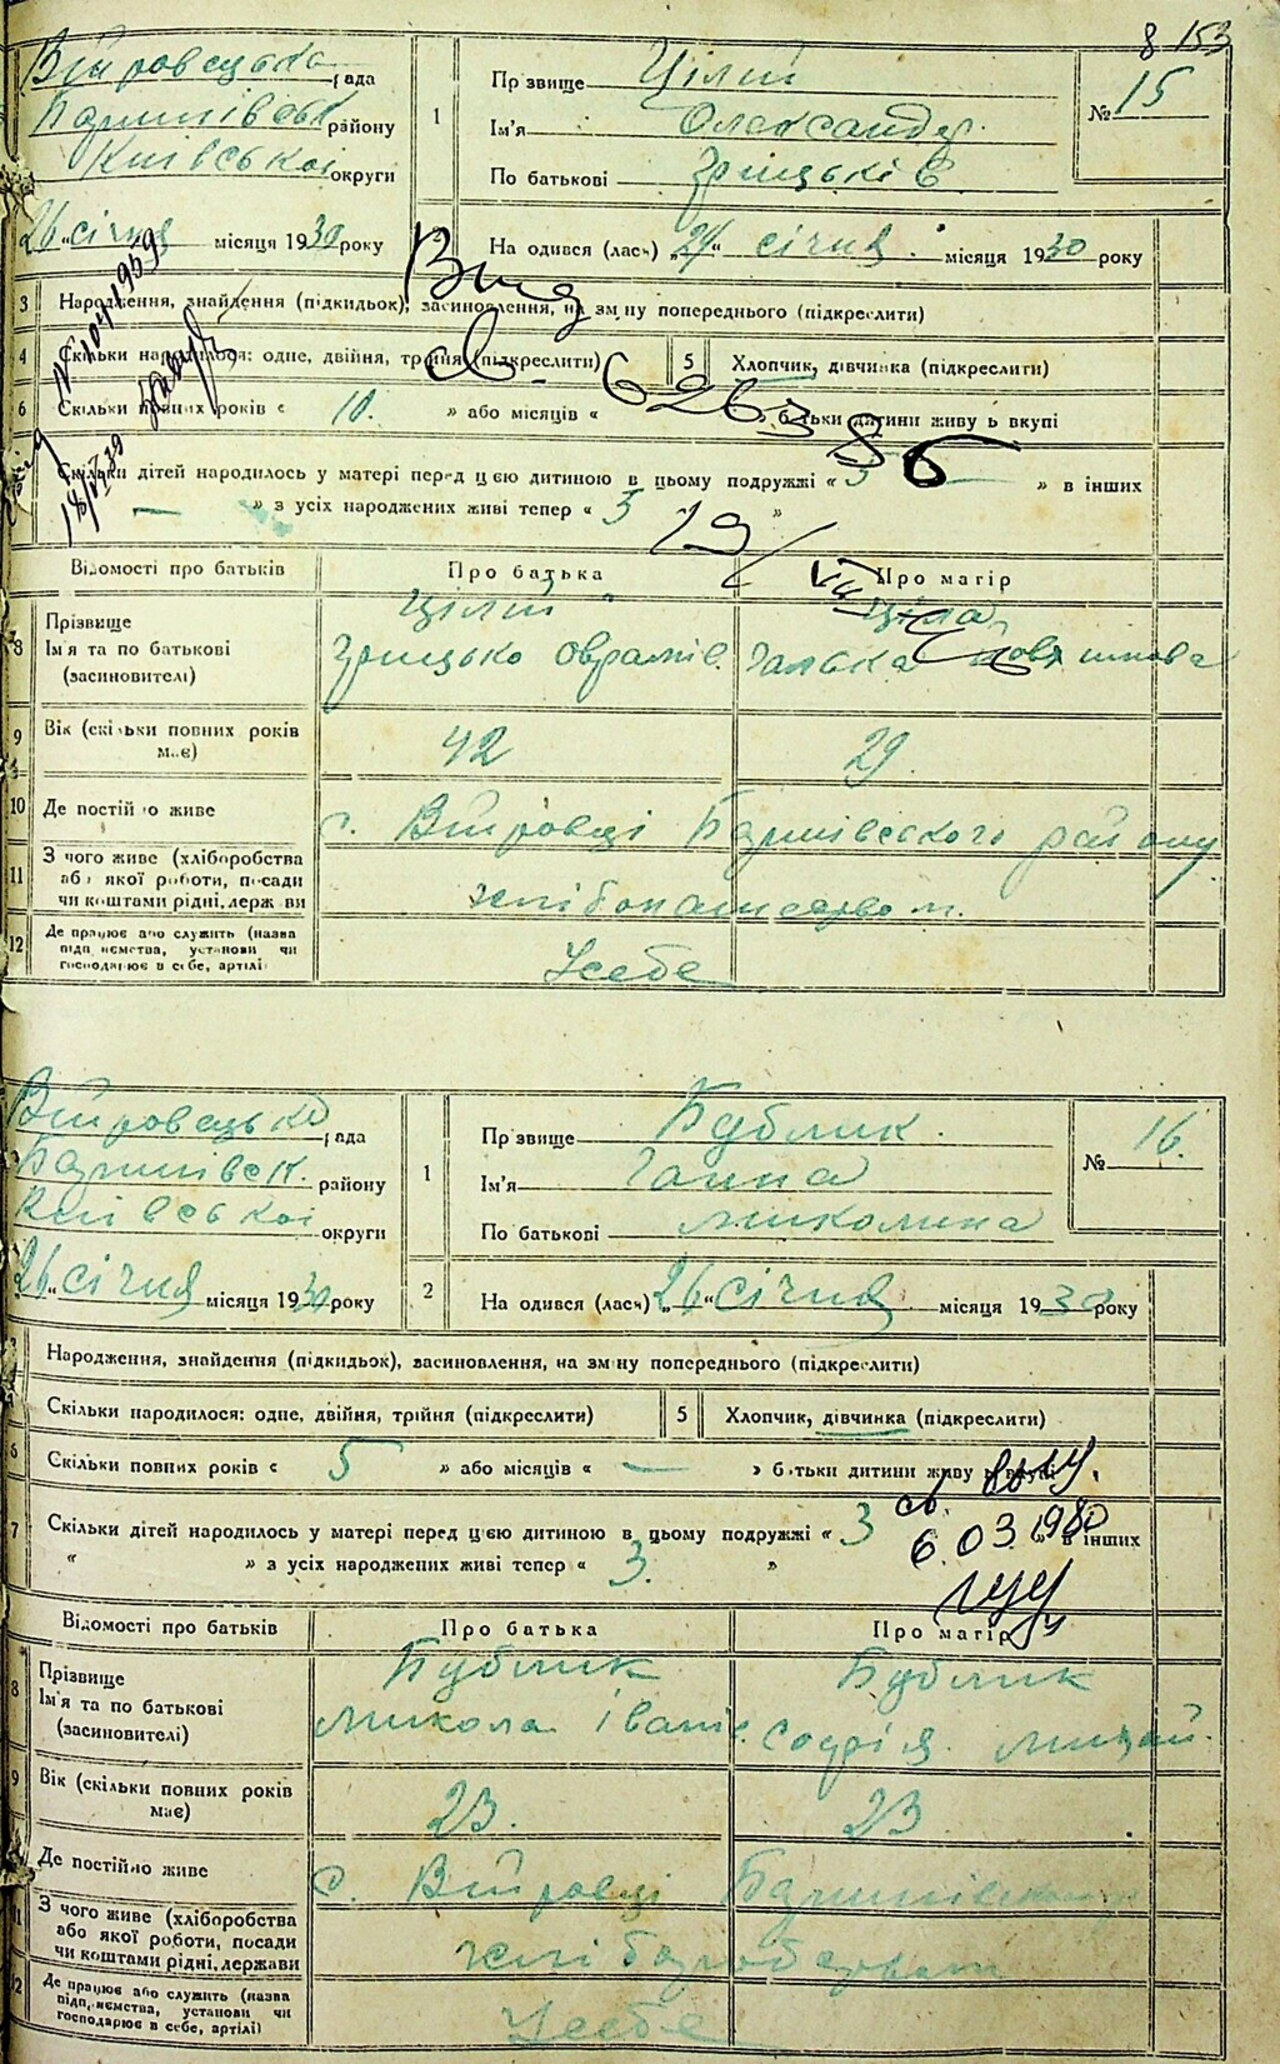 8 153
Війровецька рада
Баришівськ району
Київської округи
26 січня місяця 1930 року
1
Прізвище Цілий
Ім'я Олександр.
По батькові Грицьків
№ 15
2
На одився (лась) „24“ січня місяця 1930 року
3 Народження, знайдення (підкидьок), засиновлення, на зміну попереднього (підкреслити)
4 Скільки народилося: одне, двійня, трійня (підкреслити) 5 Хлопчик, дівчинка (підкреслити)
6 Скільки повних років « 10. » або місяців « » батьки дитини живуть вкупі
Скільки дітей народилось у матері перед цією дитиною в цьому подружжі « 5 » в інших
— » з усіх народжених живі тепер « 5 »
Відомості про батьків Про батька Про матір
8 Прізвище
Ім'я та по батькові
(засиновителі)
Цілий
Грицько Оврамів.
Ціла
Галька
9 Вік (скільки повних років має) 42 29.
10 Де постійно живе с. Війровці Баришівського району
11 З чого живе (хліборобства або якої роботи, посади чи коштами рідні, держави
12 Де працює або служить (назва підприємства, установи чи господарює в себе, артілі) Усебе
Війровецька рада
Баришівськ. району
Київської округи
26 січня місяця 1930 року
1
Прізвище Бублик.
Ім'я Ганна
По батькові Миколина
№ 16.
2 На одився (лась) „26“ січня місяця 1930 року
Народження, знайдення (підкидьок), засиновлення, на зміну попереднього (підкреслити)
Скільки народилося: одне, двійня, трійня (підкреслити) 5 Хлопчик, дівчинка (підкреслити)
6 Скільки повних років « 5 » або місяців « — » батьки дитини живуть вкупі
7 Скільки дітей народилось у матері перед цією дитиною в цьому подружжі « 3 » в інших
« » з усіх народжених живі тепер « 3. »
6.03.1980
Відомості про батьків Про батька Про матір
8 Прізвище
Ім'я та по батькові
(засиновителі)
Бублик
Микола Іванів.
Бублик
Софія
9 Вік (скільки повних років має) 23. 23
Де постійно живе с. Війровці
З чого живе (хліборобства або якої роботи, посади чи коштами рідні, держави
Де працює або служить (назва підприємства, установи чи господарює в себе, артілі) Усебе